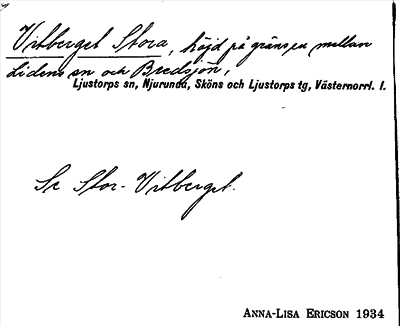 Vitberget Stora, höjd på gränsen mellan
Lidens sn och Bredsjön,
Ljustorps sn, Njurunda, Sköns och Ljustorps tg, Västernorrl. l.
Se Stor-Vitberget.
ANNA-LISA ERICSON 1934